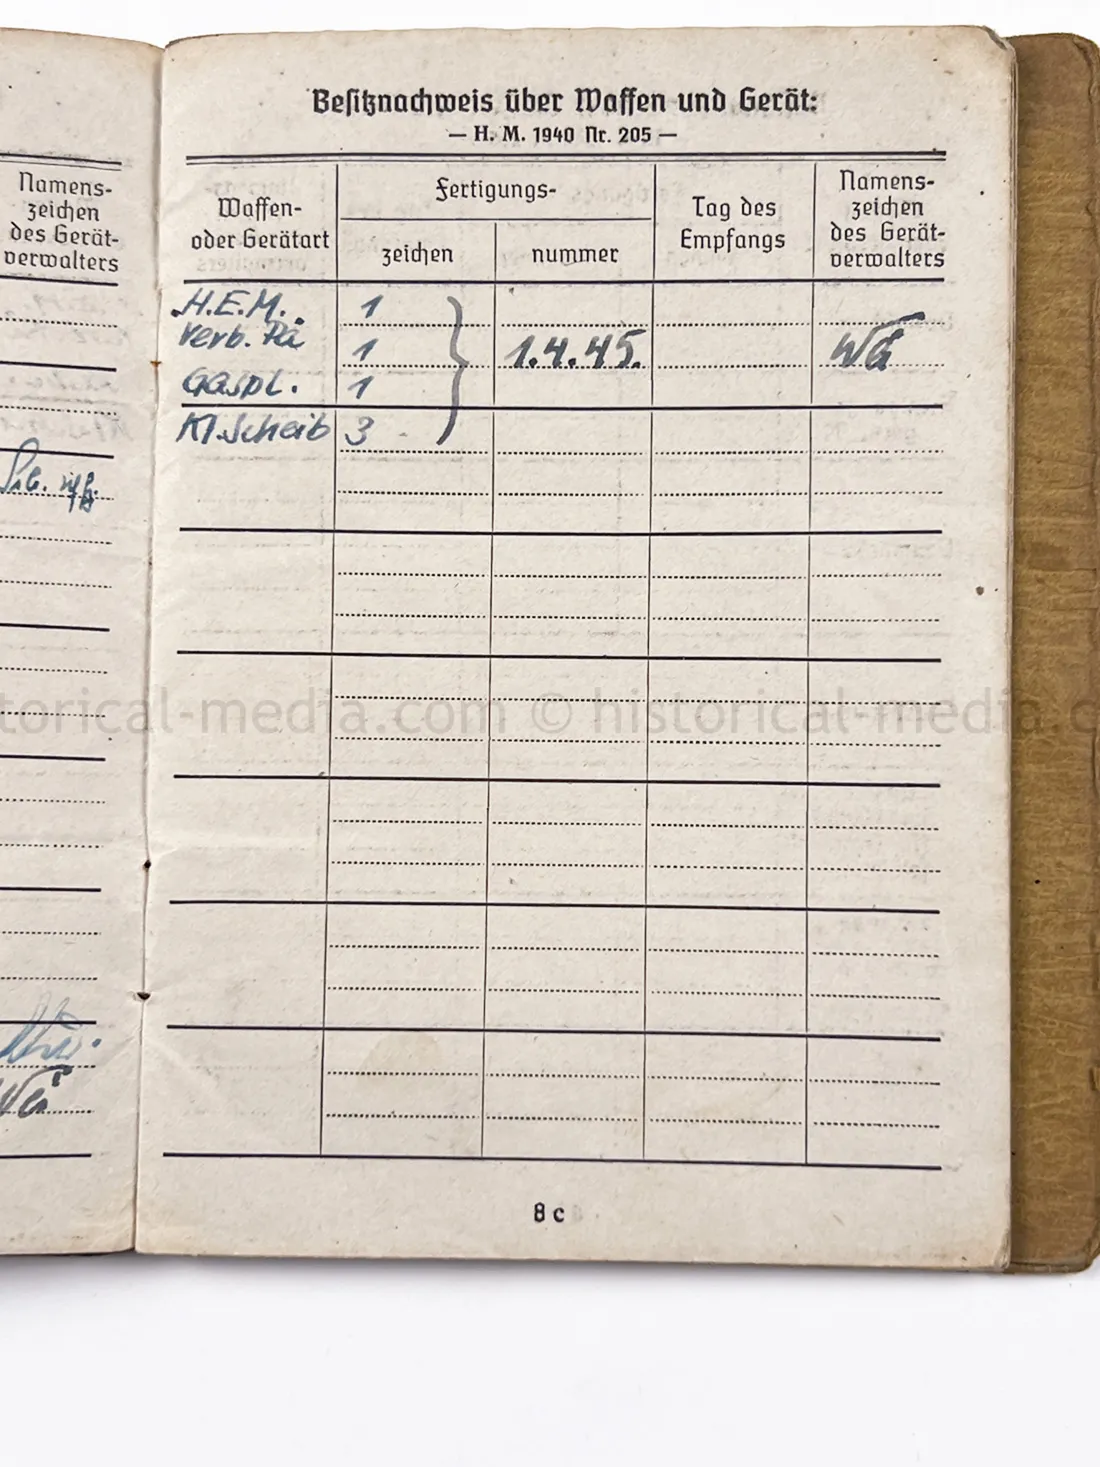 Besitznachweis über Waffen und Gerät:
— H. M. 1940 Nr. 205 —
Namens-
zeichen
des Gerät-
verwalters
Waffen-
oder Gerätart
Fertigungs-
zeichen
nummer
Tag des
Empfangs
Namens-
zeichen
des Gerät-
verwalters
H.E.M. 1
Verb. Pä 1
1.4.45.
Gaspl. 1
Kl.Scheib 3
torical-media.com © historical-media.c
8 c